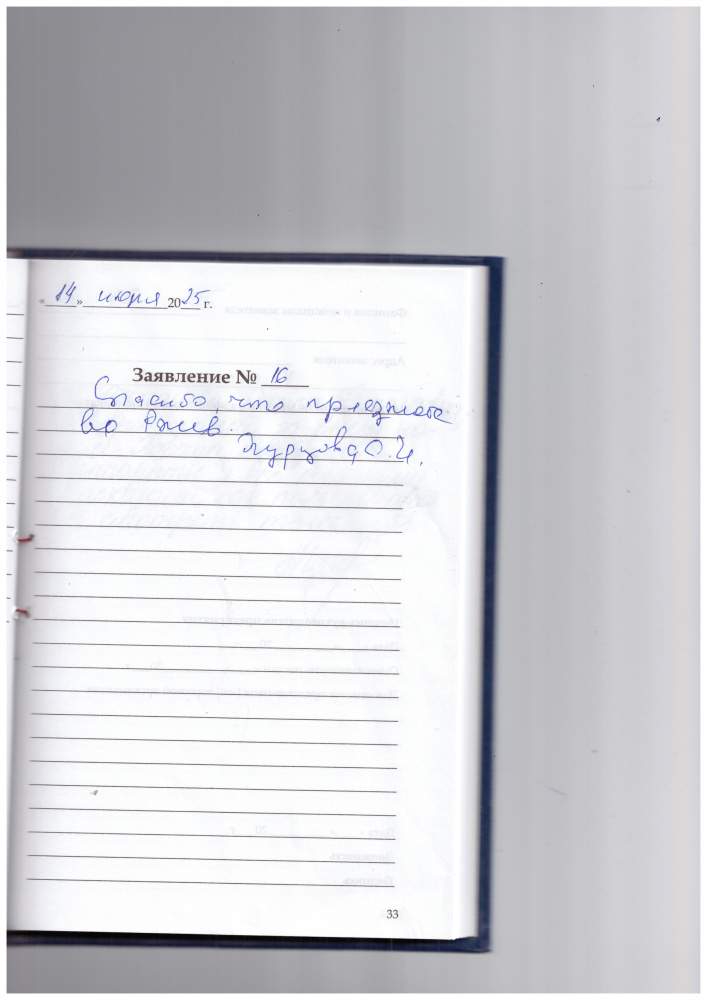 «14» июня 2025 г.
Заявление № 16
Спасибо, что приезжаете
во Ржев.
О.И.
33